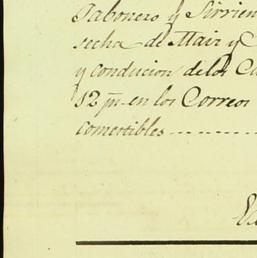 Jabonero y Sirvien
secha de Maiz y C
y conducion de los Ca
12 pn en los Correos
comertibles